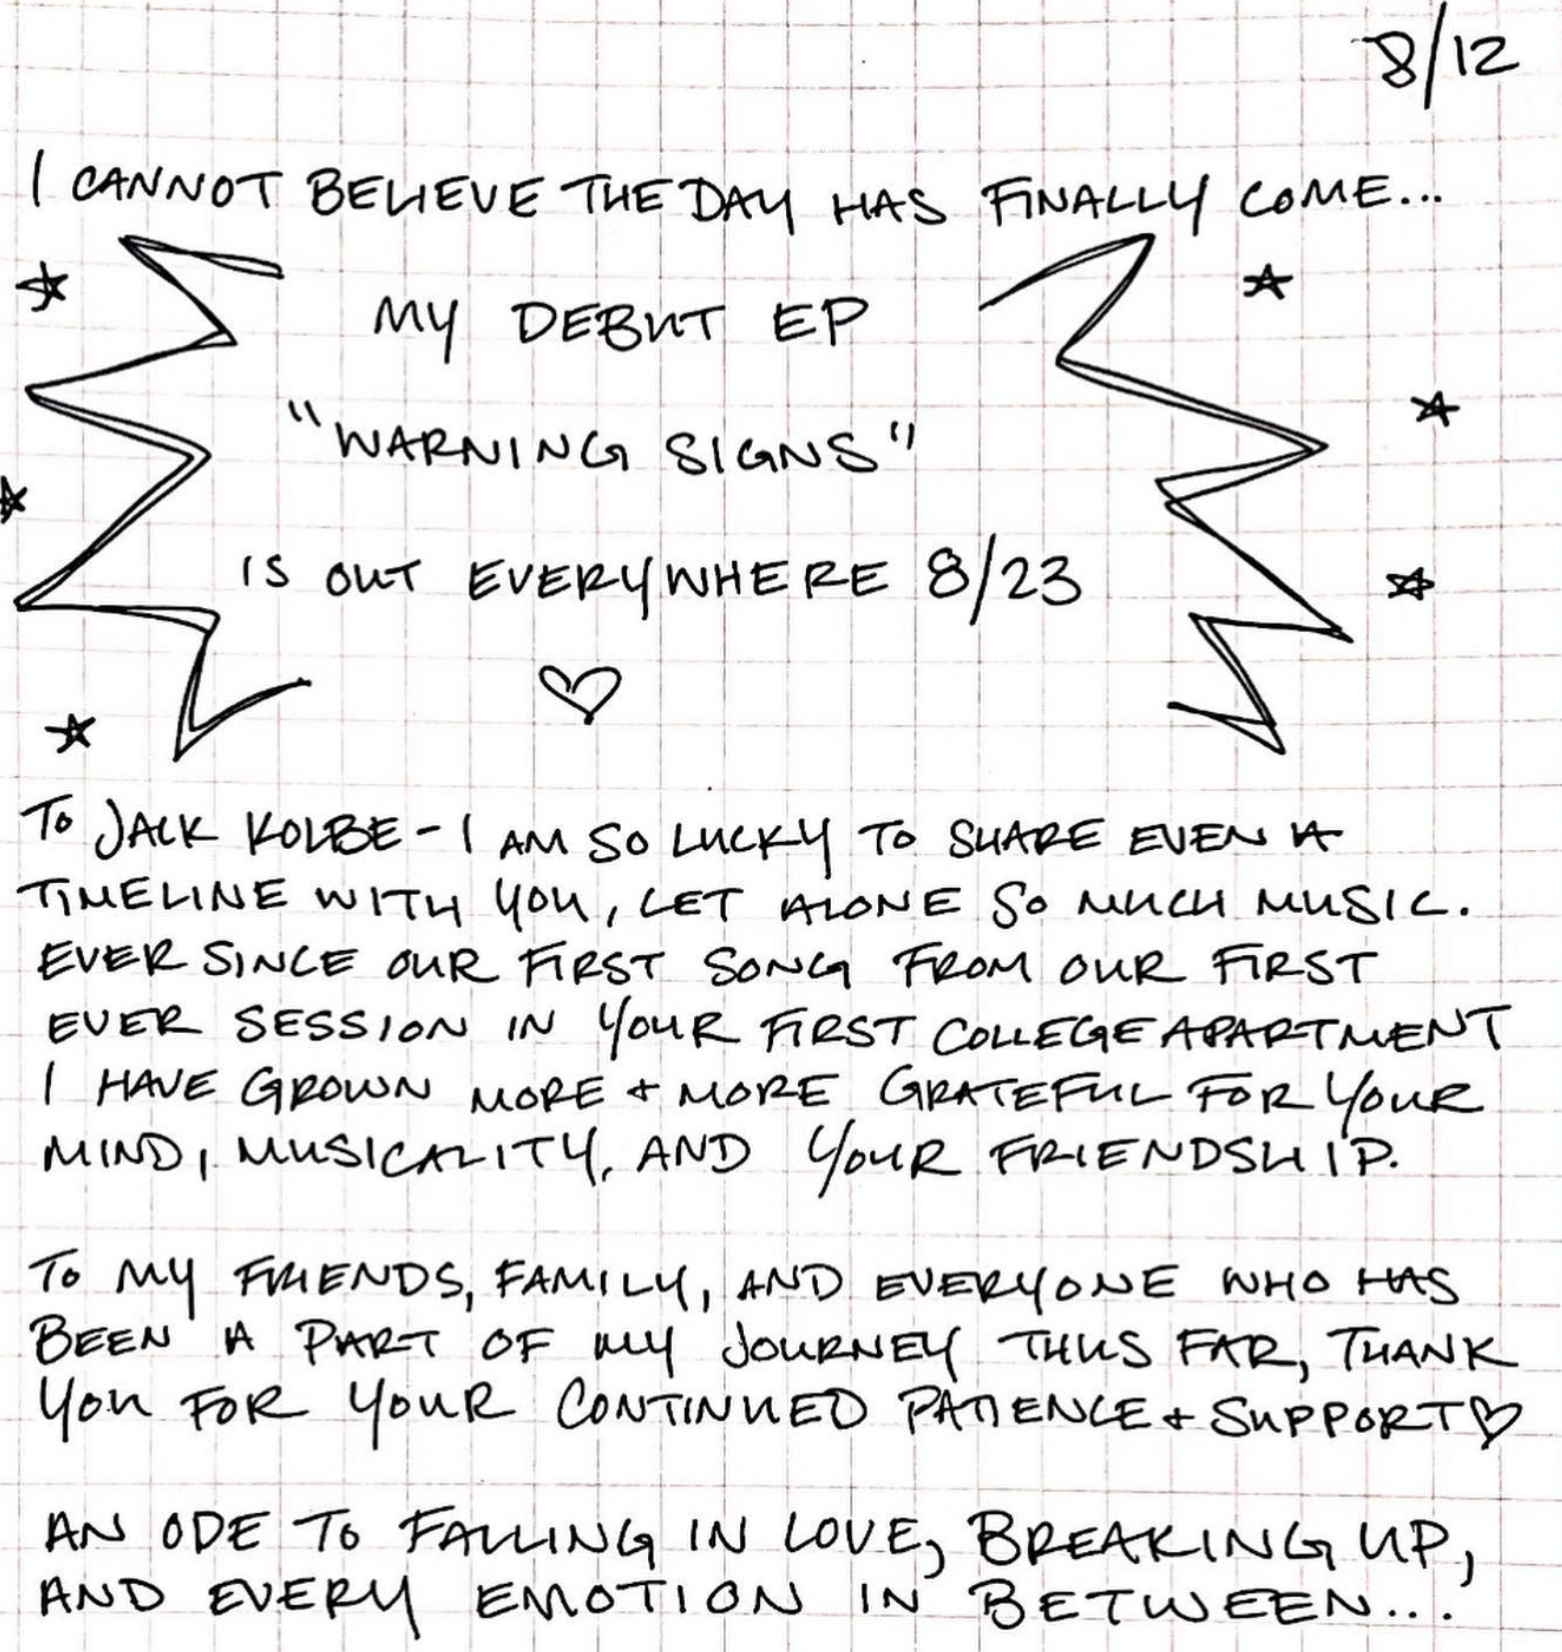 8/12
I CANNOT BELIEVE THE DAY HAS FINALLY COME...
MY DEBUT EP
"WARNING SIGNS"
IS OUT EVERYWHERE 8/23
♡
TO JACK KOLBE - I AM SO LUCKY TO SHARE EVEN A
TIMELINE WITH YOU, LET ALONE SO MUCH MUSIC.
EVER SINCE OUR FIRST SONG FROM OUR FIRST
EVER SESSION IN YOUR FIRST COLLEGE APARTMENT
I HAVE GROWN MORE + MORE GRATEFUL FOR YOUR
MIND, MUSICALITY, AND YOUR FRIENDSHIP.
TO MY FRIENDS, FAMILY, AND EVERYONE WHO HAS
BEEN A PART OF MY JOURNEY THUS FAR, THANK
YOU FOR YOUR CONTINUED PATIENCE + SUPPORT♡
AN ODE TO FALLING IN LOVE, BREAKING UP,
AND EVERY EMOTION IN BETWEEN...